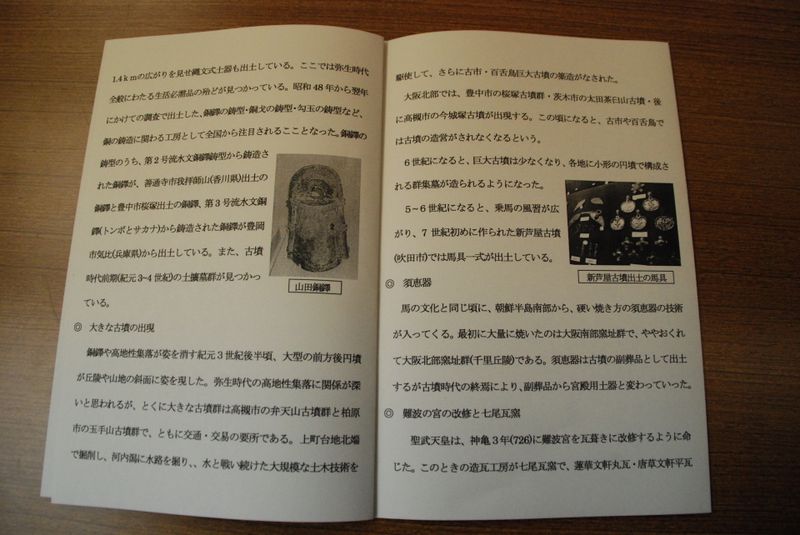 1.4ｋmの広がりを見せ縄文式土器も出土している。ここでは弥生時代
全般にわたる生活必需品の殆どが見つかっている。昭和48年から翌年
にかけての調査で出土した、銅鐸の鋳型・銅戈の鋳型・勾玉の鋳型など、
銅の鋳造に関わる工房として全国から注目されるこことなった。銅鐸の
鋳型のうち、第2号流水文銅鐸鋳型から鋳造さ
れた銅鐸が、善通寺市我拝師山(香川県)出土の
銅鐸と豊中市桜塚出土の銅鐸、第3号流水文銅
鐸(トンボとサカナ)から鋳造された銅鐸が豊岡
市気比(兵庫県)から出土している。また、古墳
時代前期(紀元3~4世紀)の土擴墓群が見つかっ
ている。
山田銅鐸
◎ 大きな古墳の出現
銅鐸や高地性集落が姿を消す紀元3世紀後半頃、大型の前方後円墳
が丘陵や山地の斜面に姿を現した。弥生時代の高地性集落に関係が深
いと思われるが、とくに大きな古墳群は高槻市の弁天山古墳群と柏原
市の玉手山古墳群で、ともに交通・交易の要所である。上町台地北端
で掘削し、河内潟に水路を掘り、、水と戦い続けた大規模な土木技術を
駆使して、さらに古市・百舌鳥巨大古墳の築造がなされた。
大阪北部では、豊中市の桜塚古墳群・茨木市の太田茶臼山古墳・後
に高槻市の今城塚古墳が出現する。この頃になると、古市や百舌鳥で
は古墳の造営がされなくなるという。
6世紀になると、巨大古墳は少なくなり、各地に小形の円墳で構成さ
れる群集墓が造られるようになった。
5~6世紀になると、乗馬の風習が広
がり、7世紀初めに作られた新芦屋古墳
(吹田市)では馬具一式が出土している。
新芦屋古墳出土の馬具
◎ 須恵器
馬の文化と同じ頃に、朝鮮半島南部から、硬い焼き方の須恵器の技術
が入ってくる。最初に大量に焼いたのは大阪南部窯址群で、ややおくれ
て大阪北部窯址群(千里丘陵)である。須恵器は古墳の副葬品として出土
するが古墳時代の終焉により、副葬品から宮殿用土器と変わっていった。
◎ 難波の宮の改修と七尾瓦窯
聖武天皇は、神亀3年(726)に難波宮を瓦葺きに改修するように命
じた。このときの造瓦工房が七尾瓦窯で、蓮華文軒丸瓦・唐草文軒平瓦